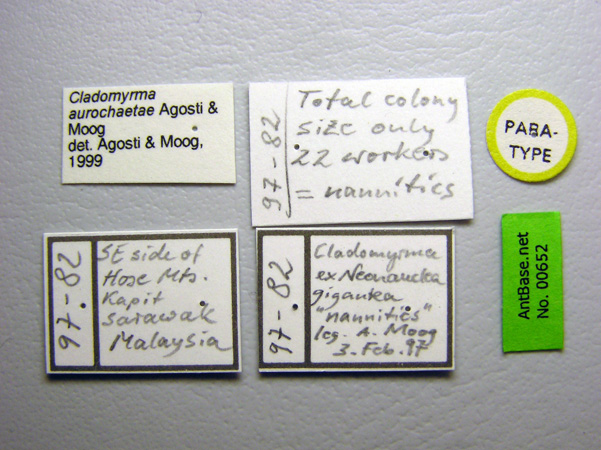 Cladomyrma
aurochaetae Agosti &
Moog
det. Agosti & Moog,
1999
97-82
Total colony
size only
22 workers
= nannitics
PARA-
TYPE
97-82
SE side of
Hose Mts.
Kapit
Sarawak
Malaysia
97-82
Cladomyrma
ex Neonauclea
gigantea
"nannitics"
leg. A. Moog
3. Feb. 97
AntBase.net
No. 00652